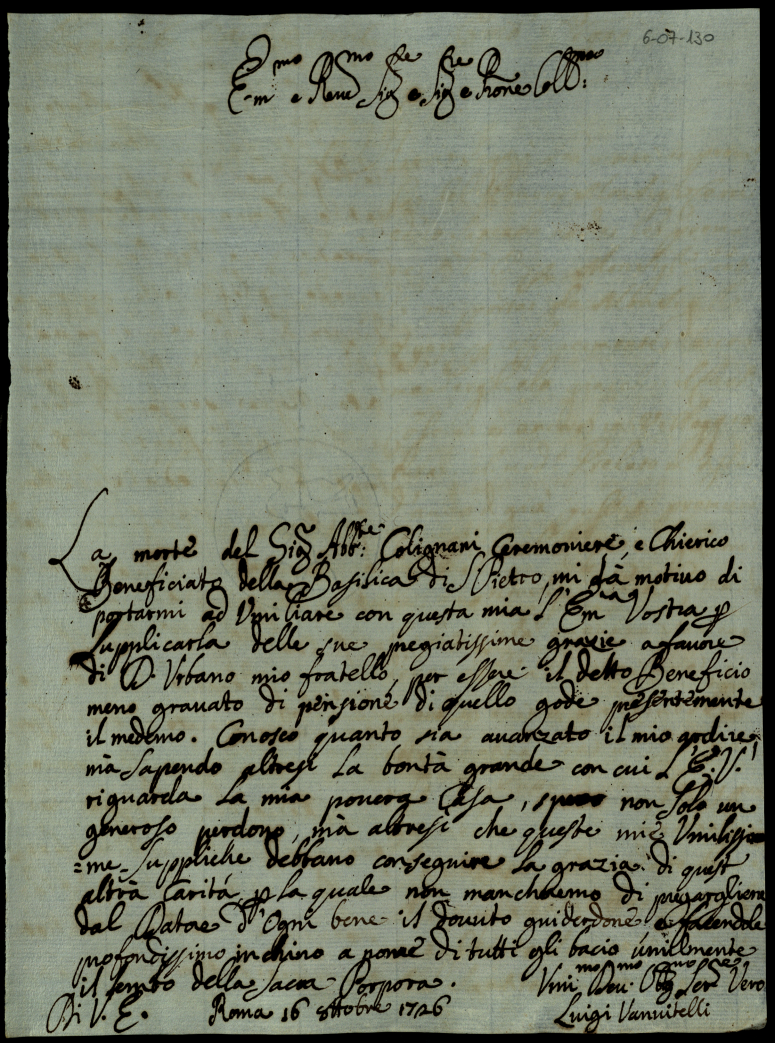 6-07-130
Em.mo e Rev.mo Sig.re e Sig.re e P.rone Coll.mo:
La morte del Sig.r Abb.te: Colignani Ceremoniere, e Chierico
Beneficiato della Basilica di S Pietro, mi dà motivo di
portarmi ad Umiliare con questa mia l'Em.za Vostra p
supplicarla delle sue pregiatissime grazie a favore
di D. Urbano mio fratello, per essere il detto Beneficio
meno gravato di pensione di quello gode presentemente
il medemo. Conosco quanto sia avanzato il mio ardire,
mà sapendo altresi la bontà grande con cui l'E.V.
riguarda la mia povera Casa, spero non solo un
generoso perdono, mà altresi che queste mie Umilissi
=me suppliche debbano conseguire la grazia di quest
altra Carità p la quale non mancharemo di pregargliene
dal Datore d'Ogni bene il dovuto guiderdone, e facendole
profondissimo inchino a nome di tutti gli bacio umilmente
il lembo della Sacra Porpora.
Di V. E. Roma 16 8ttobre 1726
Umi.mo Dev.mo Obg.mo Ser.re Vero
Luigi Vanvitelli